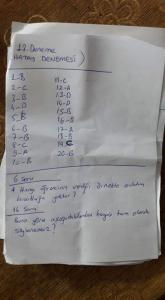 17. Deneme
(HATAY DENEMESİ)
1-B
2-C
3-B
4-D
5-B
6-B
7-B
8-C
9-A
10-B
11-C
12-A
13-D
14-D
15-B
16-B
17-A
18-B
19-C
20-B
6. Soru
* Hangi öğrencinin verdiği örnekte
16. Soru
Buna göre aşağıdakilerden hangisi tam olarak
söylenemez?